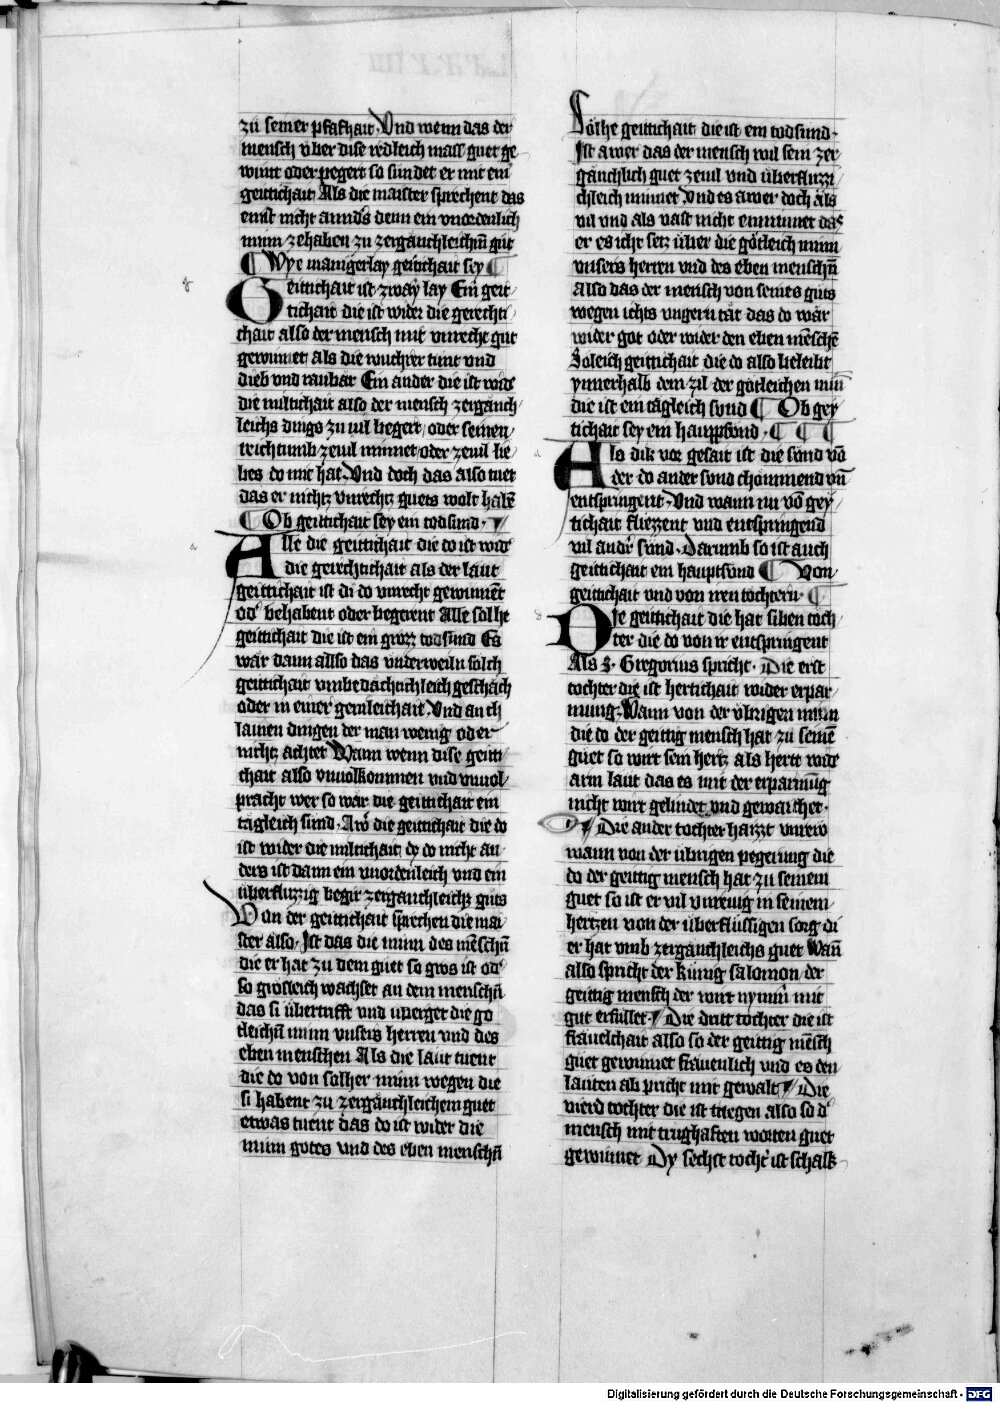 zu seiner pfafhait · Vnd wenn das der
mensch vber dise redleich mass guet ge
winnt oder pegert so sundet er mit ein
geittichait Als die maister sprechent das
geittichait ist zway lay Ein geit
tichait die ist wider die gerechti
chait also der mensch mit vnrecht gut
gewinnet als die wuchrer tunt vnd
dieb vnd raubär Ein ander die ist wider
die miltichait also der mensch zergänch
leichs dings zu uil begert / oder seinen
reichtumb zeuil minnet / oder zeuil lie
bes do mit hat · Vnd doch das also tuet
das er nicht vnrechtz guets wolt haben
¶ Ob geittichait sey ein todsund ·
Alle die geittichait die do ist wider
die gerechtichait als der laut
geittichait ist di do vnrecht gewinnent
oder behabent oder begerent Alle solhe
geittichait die ist ein grozz todsund Es
wär dann allso das vnderweiln solch
geittichait vmbedachtichleich geschäch
oder in einer gemleichait · Vnd an ch
lainen dingen der man wenig oder
nicht achtet Wann wenn dise geitti
chait also vnuolkommen vnd vnuol
pracht wer so wär die geittichait ein
tägleich sund · Awer die geittichait die do
ist wider die miltichait dy do nicht an
ders ist dann ein vnordenleich vnd ein
vberfluzzig begir zergänchleichs guts
Von der geittichait sprechen die mai
ster also · Ist das die minn des menschen
die er hat zu dem guet so gros ist oder
so grosleich wachset an dem menschen
das si übertrifft vnd vperget die go
tleichen minn vnsers herren vnd des
eben menschen Als die laut tuent
die do von solher minn wegen die
si habent zu zergänchleichem guet
etwas tuent das do ist wider die
minn gotes vnd des eben menschen
Sölhe geittichait die ist ein todsund ·
Ist awer das der mensch wil sein zer
gänchlich guet zeuil vnd überfluzzi
chleich minnet Vnd es awer doch äls
vil vnd als vast nicht enminnet das
er es icht setz über die götleich minn
vnsers herren vnd des eben menschen
also das der mensch von seines guts
wegen ichts vngern tät das do wär
wider got oder wider den eben menschen
Soleich geittichait die do also beleibt
ynnerhalb dem zil der götleichen minn
die ist ein tägleich sond ¶ Ob gey
tichait sey ein hauppsond · ¶ ¶ ¶
Als dik vor gesait ist die sond von
der do ander sond chömmend vnd
entspringent · Vnd wann nu von gey
tichait fliezzent vnd entspringend
vil ander sünd · Darumb so ist auch
geittichait ein hauptsond ¶ Von
geittichait vnd von iren töchtern ¶
Die geittichait die hat siben töch
ter die do von ir entspringent
Als S · Gregorius spricht · Die erst
tochter die ist hertichait wider erpar
mung · Wann von der vbrigen minn
die do der geittig mensch hat zu seinem
guet so wirt sein hertz als hertt wider
arm laut das es mit der erparmung
nicht wirt gelindet vnd gewaichet ·
¶ Die ander tochter haizzt vnrew
wann von der übrigen pegerung die
do der geittig mensch hat zu seinem
guet so ist er vil vnrewig in seinem
hertzen von der überflüssigen sorg di
er hat vmb zergänchleichs guet Wann
also spricht der künig salomon / der
geittig mensch der wirt nymmer mit
gut erfüllet · ¶ Die dritt tochter die ist
frauelchait also so der geittig mensch
guet gewinnet frauenlich vnd es den
läuten ab pricht mit gewalt ¶ Die
vierd tochter die ist triegen also so der
mensch mit trughaften worten guet
gewinnet Dy sechst tochter ist schalk